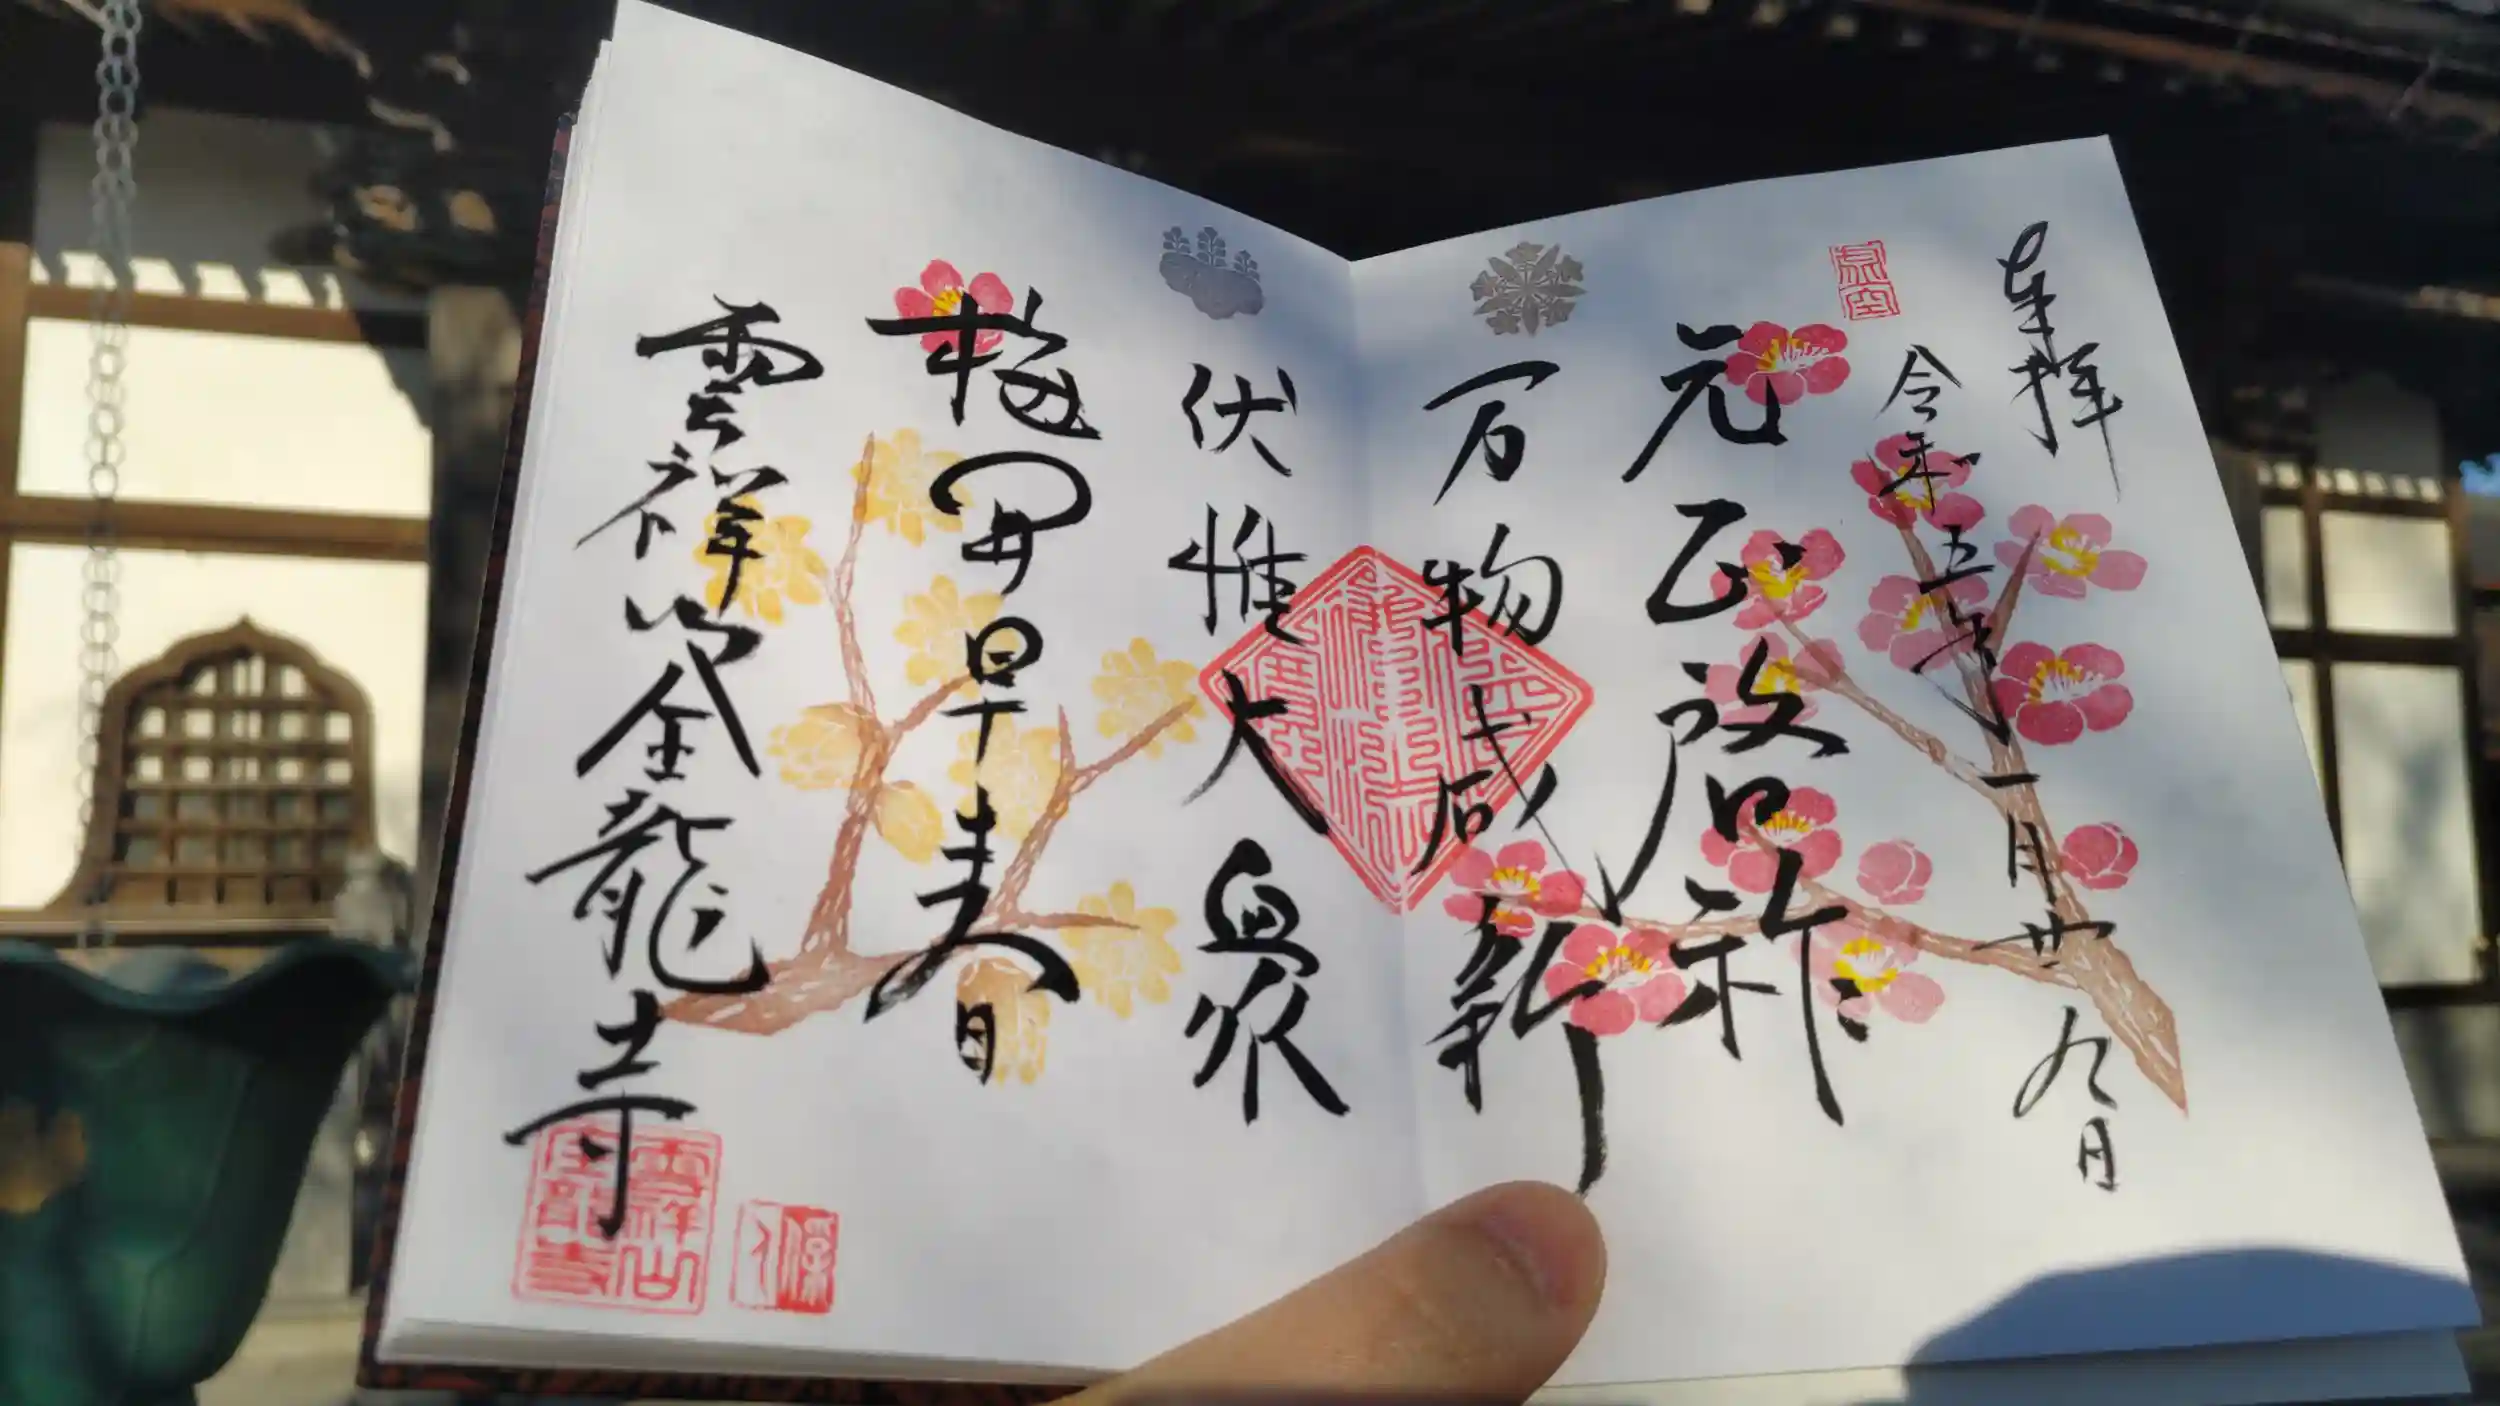 奉拝
令和五年一月廿九日
元正啓祚
万物咸新
伏惟大衆
梅開早春
雲祥山金龍寺
雲祥山
金龍寺